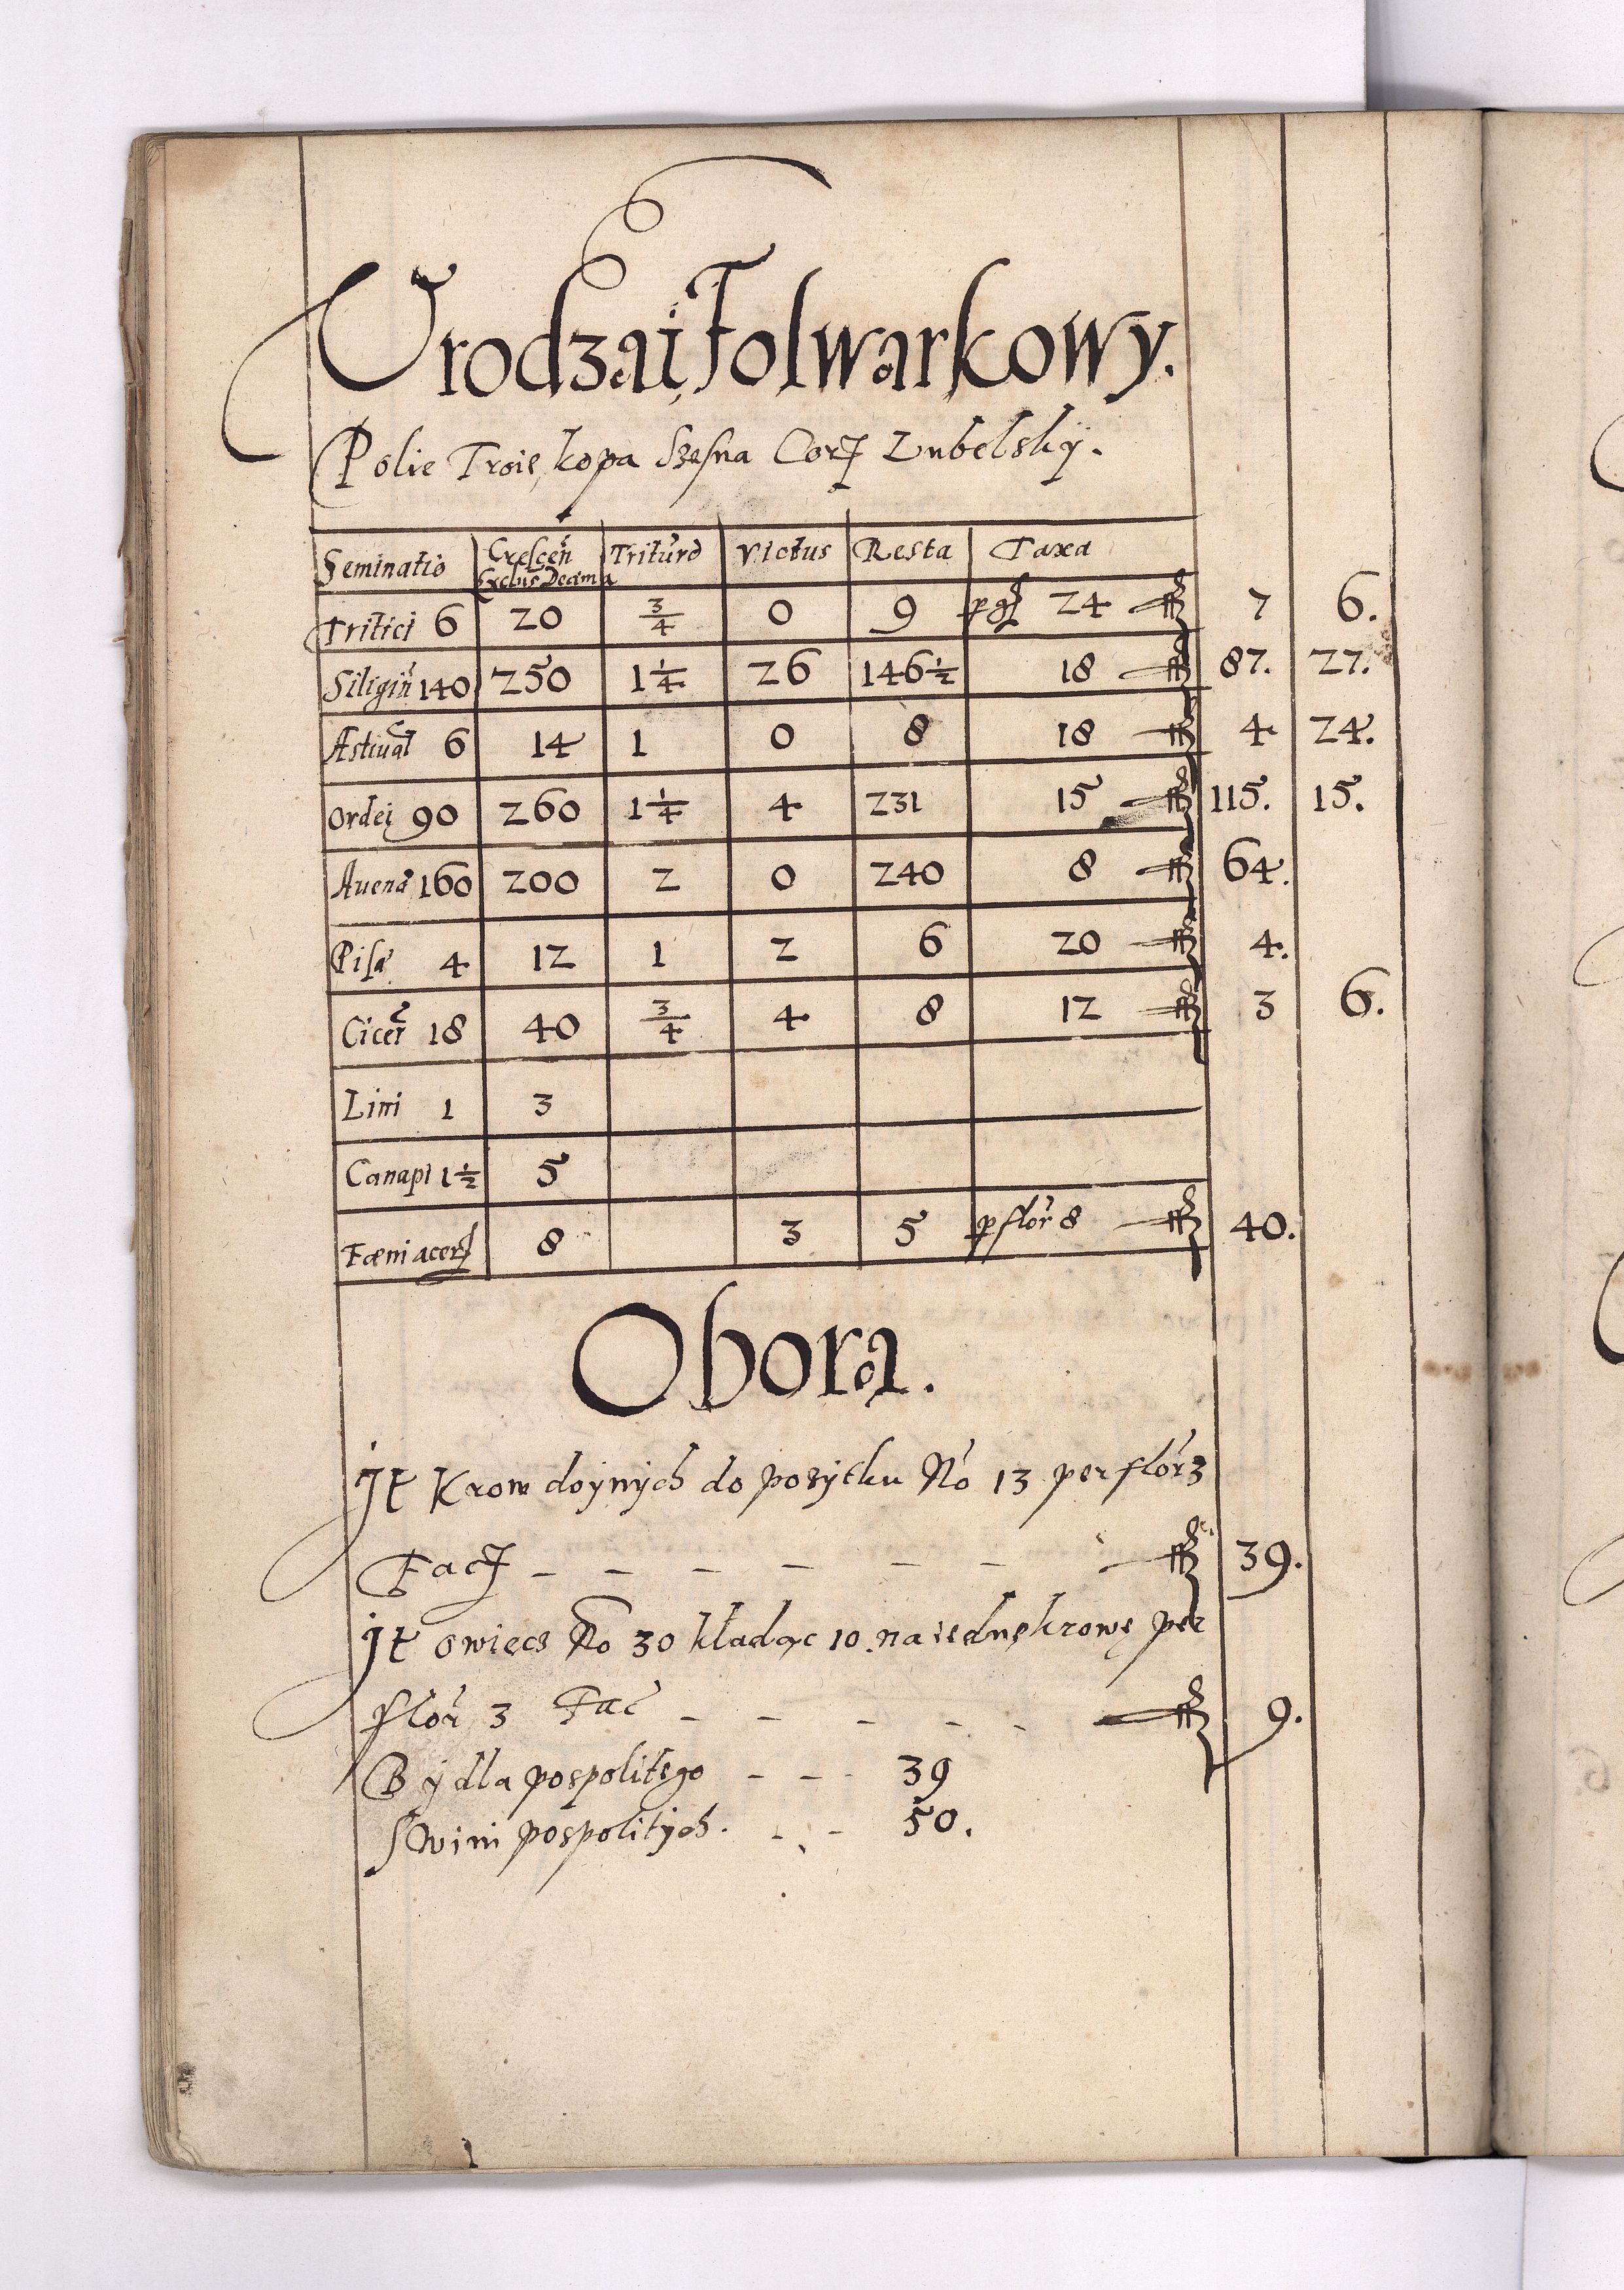 Urodzai Folwarkowy.
Polie Troie, kopa Szesna Corz Lubelsky.
Seminatio Crescen Exclus Decima Tritura Victus Resta Taxa
Tritici 6 20 3/4 0 9 p gr 24 f 7 6.
Siligin 140 250 1 1/4 26 146 1/2 18 f 87. 27.
Æstiual 6 14 1 0 8 18 f 4 24.
Ordei 90 260 1 1/4 4 231 15 f 115. 15.
Auena 160 200 2 0 240 8 f 64.
Pisa 4 12 1 2 6 20 f 4.
Cicer 18 40 3/4 4 8 12 f 3 6.
Lini 1 3
Canapi 1 1/2 5
Fæni acer 8 3 5 p flor 8 f 40.
Obora.
Jt Krow doynych do pozytku No 13 per flor 3
Fac — — — — — — f 39.
Jt owiecs No 30 kładąc 10 na iednę krowę per
flor 3 Fac — — — — — f 9.
Bydla pospolitego — — - 39
Swini pospolitych. - - - 50.